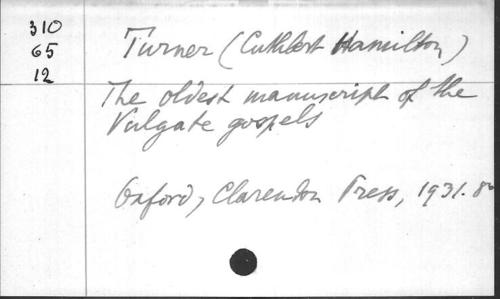 310
65
12
Turner (Cuthbert Hamilton)
The oldest manuscript of the
Vulgate gospels
Oxford, Clarendon Press, 1931. 8o